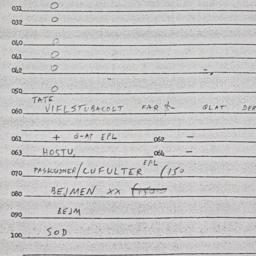 031 0
032 0
040 0
041 0
042 0
050 0
TATE
060 VIFLSTUBACOLT FAR GLAT DER
061 + G-AT EPL 062 -
063 HOSTU, 064 -
EPL
070 PASKUSHER/LUFULTER (150
080 BEJMEN XX
090 BEJM
100 SOD